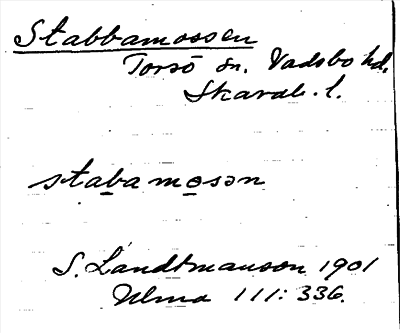 Stabbamossen
Torsö sn. Vadsbo hd.
Skarab. l.
stabamosən
S. Landtmanson 1901
Ulma 111:336.